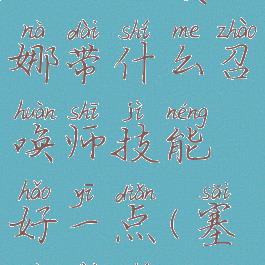 nà dài shí me zhào
娜带什么召
huàn shī jì néng
唤师技能
hǎo yī diǎn sāi
好一点(塞